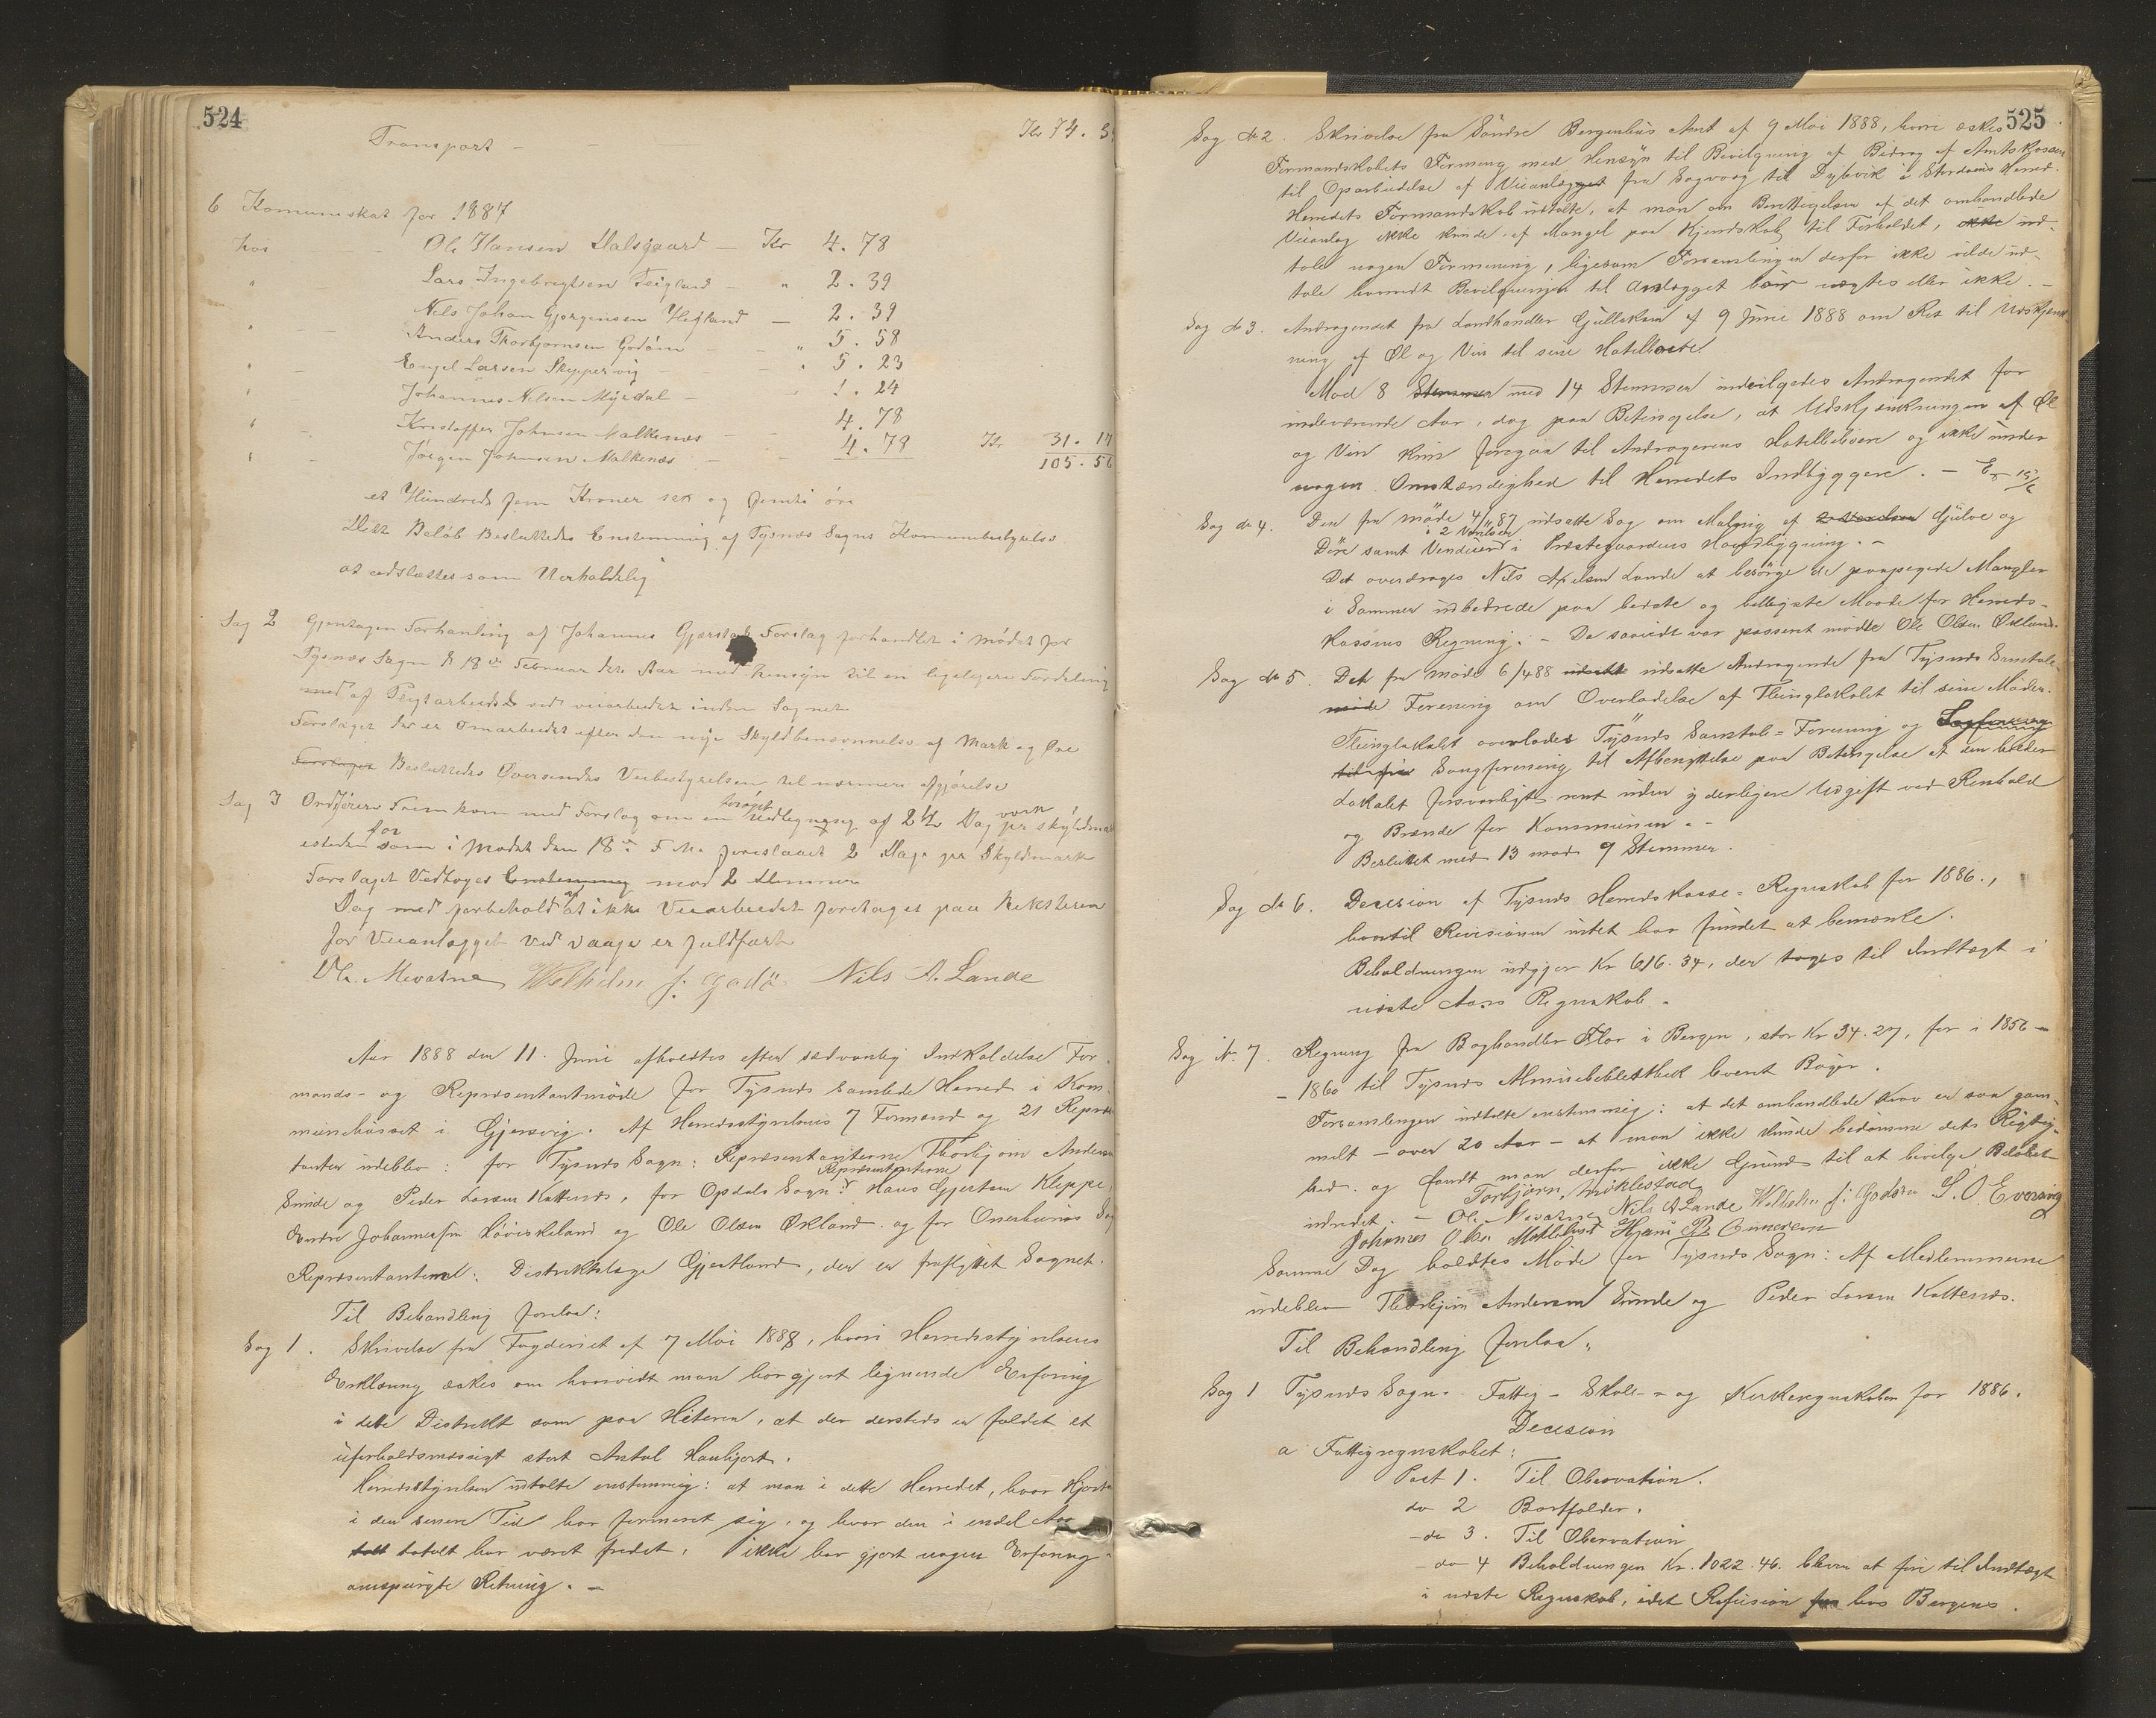 524
Transport — — Kr 74. 3
6 Komuneskat for 1887
hos Ole Hansen Dalsgaard — Kr 4.78
" — Lars Ingebregtsen Teigland — " 2.39
Nils Johan Gjørgensen Hegland — 2.39
" — Anders Thorbjørnsen Godøen — " 5.58
" — Engel Larsen Skyppervig — " 5.23
" — Johannes Nilsen Myrdal — 1.24
" — Kristoffer Johnsen Malkenæs — 4.78
" — Jørgen Johnsen Malkenæs — 4.79 Kr 31.17
105.56
et Hundrede fem Kroner sex og femti øre
Dette Beløb Besluttedes Enstemmig af Tysnæs Sogns Komunebestyrelse
at udslættes som Uerholdelig
Sag 2 Gjentagen Forhanling af Johannes Gjærstad Forslag forhandlet i mødet for
Tysnæs Sogn d 18de Februar dte Aar med hensyn til en ligeligere Fordeling
med af Pligtarbeidet ved veiarbeidet inden Sognet
Forslaget der er Omarbeidet efter den nye Skyldbenævnnelse af Mark og Øre
Forslaget Besluttedes Oversendes Veibestyrelsen til nærmere afgjørelse
Sag 3 Ordføreren Frem kom med Forslag om en forøget Udlegning af 2 1/2 Dag pr skyldmark
istedenfor som i Mødet den 18de F. M. foreslaaet 2 Dage pr Skyldmark
Forslaget Vedtoges Enstemmig mod 2 Stemmer
Dog med forbehold af at ikke Veiarbeidet foretages paa Reksteren
før Veianlægget ved Vaage er fuldført
Ole Mevatne Wilhelm J. Godø Nils A. Lande
Aar 1888 den 11. Juni afholdtes efter sædvanlig Indkaldelse For-
mands- og Repræsentantmøde for Tysnes samlede Herred i Kom-
munehuset i Gjersvig. Af Herredsstyrelsens 7 Formænd og 21 Repræsen
tanter udeblev: for Tysnes Sogn: Repræsentanterne Thorbjørn Andersen
Sunde og Peder Larsen Kattenes, for Opdals Sogn: Repræsentanterne Hans Gjertsen Kleppe,
Endre Johannessen Høviskeland og Ole Olsen Økland og for Onerheims Sogn
Repræsentanten: Distriktslæge Gjestland, der er fraflyttet Sognet.
Til Behandling forelaa:
Sag 1. Skrivelse fra Fogderiet af 7 Mai 1888, hvori Herredsstyrelsens
Erklæring æskes om hvorvidt man har gjort lignende Erfaring
i dette Distrikt som paa Hiteren, at der dersteds er faldet et
uforholdsmæssigt stort Antal Hanhjort.
Herredsstyrelsen udtalte enstemmig: at man i dette Herredet, hvor Hjorten
i den senere Tid har formeret sig, og hvor den i endel Aar
totalt har været fredet, ikke har gjort nogen Erfaring i
omspurgte Retning. —
525
Sag No 2. Skrivelse fra Søndre Bergenhus Amt af 9 Mai 1888, hvori æskes
Formandskabets Formening med Hensyn til Bevilgning af Bidrag af Amtskassen
til Oparbeidelse af Veianlægget fra Sagvaag til Dybvik i Stordøens Herred.
Herredets Formandskab udtalte, at man om Berettigelsen af det omhandlede
Veianlæg ikke kunde af Mangel paa Kjendskab til Forholdet, ikke ud-
tale nogen Formening, ligesom Forsamlingen derfor ikke vilde ud-
tale hvorvidt Bevilgningen til Anlægget bør nægtes eller ikke. —
Sag No 3. Andragendet fra Landhandler Gullaksen af 9 Juni 1888 om Ret til Udskjænk-
ning af Øl og Vin til sine Hotelgjæster.
Mod 8 Stemmer med 14 Stemmer indvilgedes Andragendet for
indeværende Aar, dog paa Betingelse, at Udskjænkningen af Øl
og Vin kun foregaar til Andragerens Hotelbeboere og ikke under
nogen Omstændighed til Herredets Indbyggere. — Ex 15/6
Sag No 4. Den fra Møde 4/ 87 udsatte Sag om Maling af Gulve og
Døre samt i 2 Værelser i Præstegaardens Hovedbygning. —
Det overdrages Nils Axelsen Lande at besørge de paapegede Mangler
i Sommer udbedrede paa bedste og billigste Maade for Herreds-
kassens Regning. — Da saavidt var passeret mødte Ole Olsen Økland.
Sag No 5. Det fra Møde 6/4 88 udsatte udsatte Andragende fra Tysnes Samtale-
møde Forening om Overladelse af Thinglokalet til sine Møder.
Thinglokalet overlades Tysnes Samtale-Forening og Sagforening
til fri Sangforening til Afbenyttelse paa Betingelse at den holder
Lokalet forsvarligt rent uden yderligere Udgift ved Renhold
og Brænde for Kommunen. —
Besluttet med 13 mod 9 Stemmer.
Sag No 6. Decision af Tysnes Herredskasse-Regnskab for 1886.,
hvortil Revisionen intet har fundet at bemærke.
Beholdningen udgjør Kr 616.34, der tages til Indtægt i
næste Aars Regnskab. —
Sag N. 7. Regning fra Boghandler Flor i Bergen, stor Kr 34.27, for i 1856 —
— 1860 til Tysnes Almuebibliothek leveret Bøger.
Forsamlingen udtalte enstemmig: at det omhandlede Krav er saa gam-
melt — over 20 Aar — at man ikke kunde bedømme dets Rigtig-
hed. og fandt man derfor ikke Grund til at bevilge Beløbet
udredet. — Torbjørn Miklestad
Ole Mevatne Nils A Lande Wilhelm J. Godøen S. O Eversvig
Johannes Olsen Hans B Onnereim
Samme Dag holdtes Møde for Tysnes Sogn: Af Medlemmerne
udeblev Thorbjørn Andersen Sunde og Peder Larsen Kattenes.
Til Behandling forelaa:
Sag 1 Tysnes Sogns Fattig- Skole- og Kirkeregnskaber for 1886.
Decision
a Fattigregnskabet:
Post 1. Til Observation.
do 2 Bortfalder.
do 3. Til Observation
do 4 Beholdningen Kr. 1022.46. bliver at føre til Indtægt
i næste Regnskab, idet Refusion fra hos Bergens